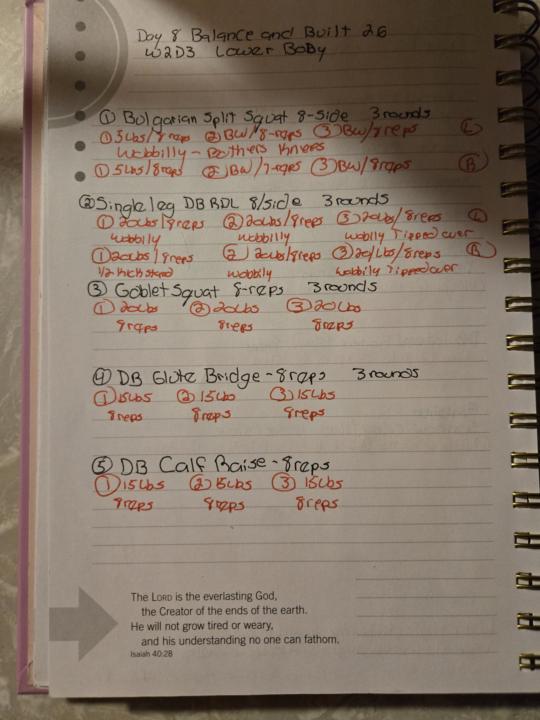 Day 8 Balance and Built 26
W2D3 Lower Body
① Bulgarian Split Squat 8-side 3 rounds
① 5lbs/8reps ② BW/8-reps ③ BW/8reps Ⓛ
Wobbilly - Bothers Knees
① 5lbs/8reps ② BW/7-reps ③ BW/8reps Ⓡ
② Single leg DB RDL 8/side 3 rounds
① 20lbs/8reps ② 20lbs/8reps ③ 20lbs/8reps Ⓛ
wobbily wobbilly wobily Tipped over
① 20lbs/8reps ② 20lbs/8reps ③ 20/Lbs/8reps Ⓡ
1/2 Kickstand wobbily wobbily Tipped over
③ Goblet Squat 8-reps 3 rounds
① 20Lbs ② 20Lbs ③ 20Lbs
8reps 8reps 8reps
④ DB Glute Bridge - 8reps 3 rounds
① 15Lbs ② 15Lbs ③ 15Lbs
8reps 8reps 8reps
⑤ DB Calf Raise - 8reps
① 15Lbs ② 15Lbs ③ 15Lbs
8reps 8reps 8reps
The LORD is the everlasting God,
the Creator of the ends of the earth.
He will not grow tired or weary,
and his understanding no one can fathom.
Isaiah 40:28